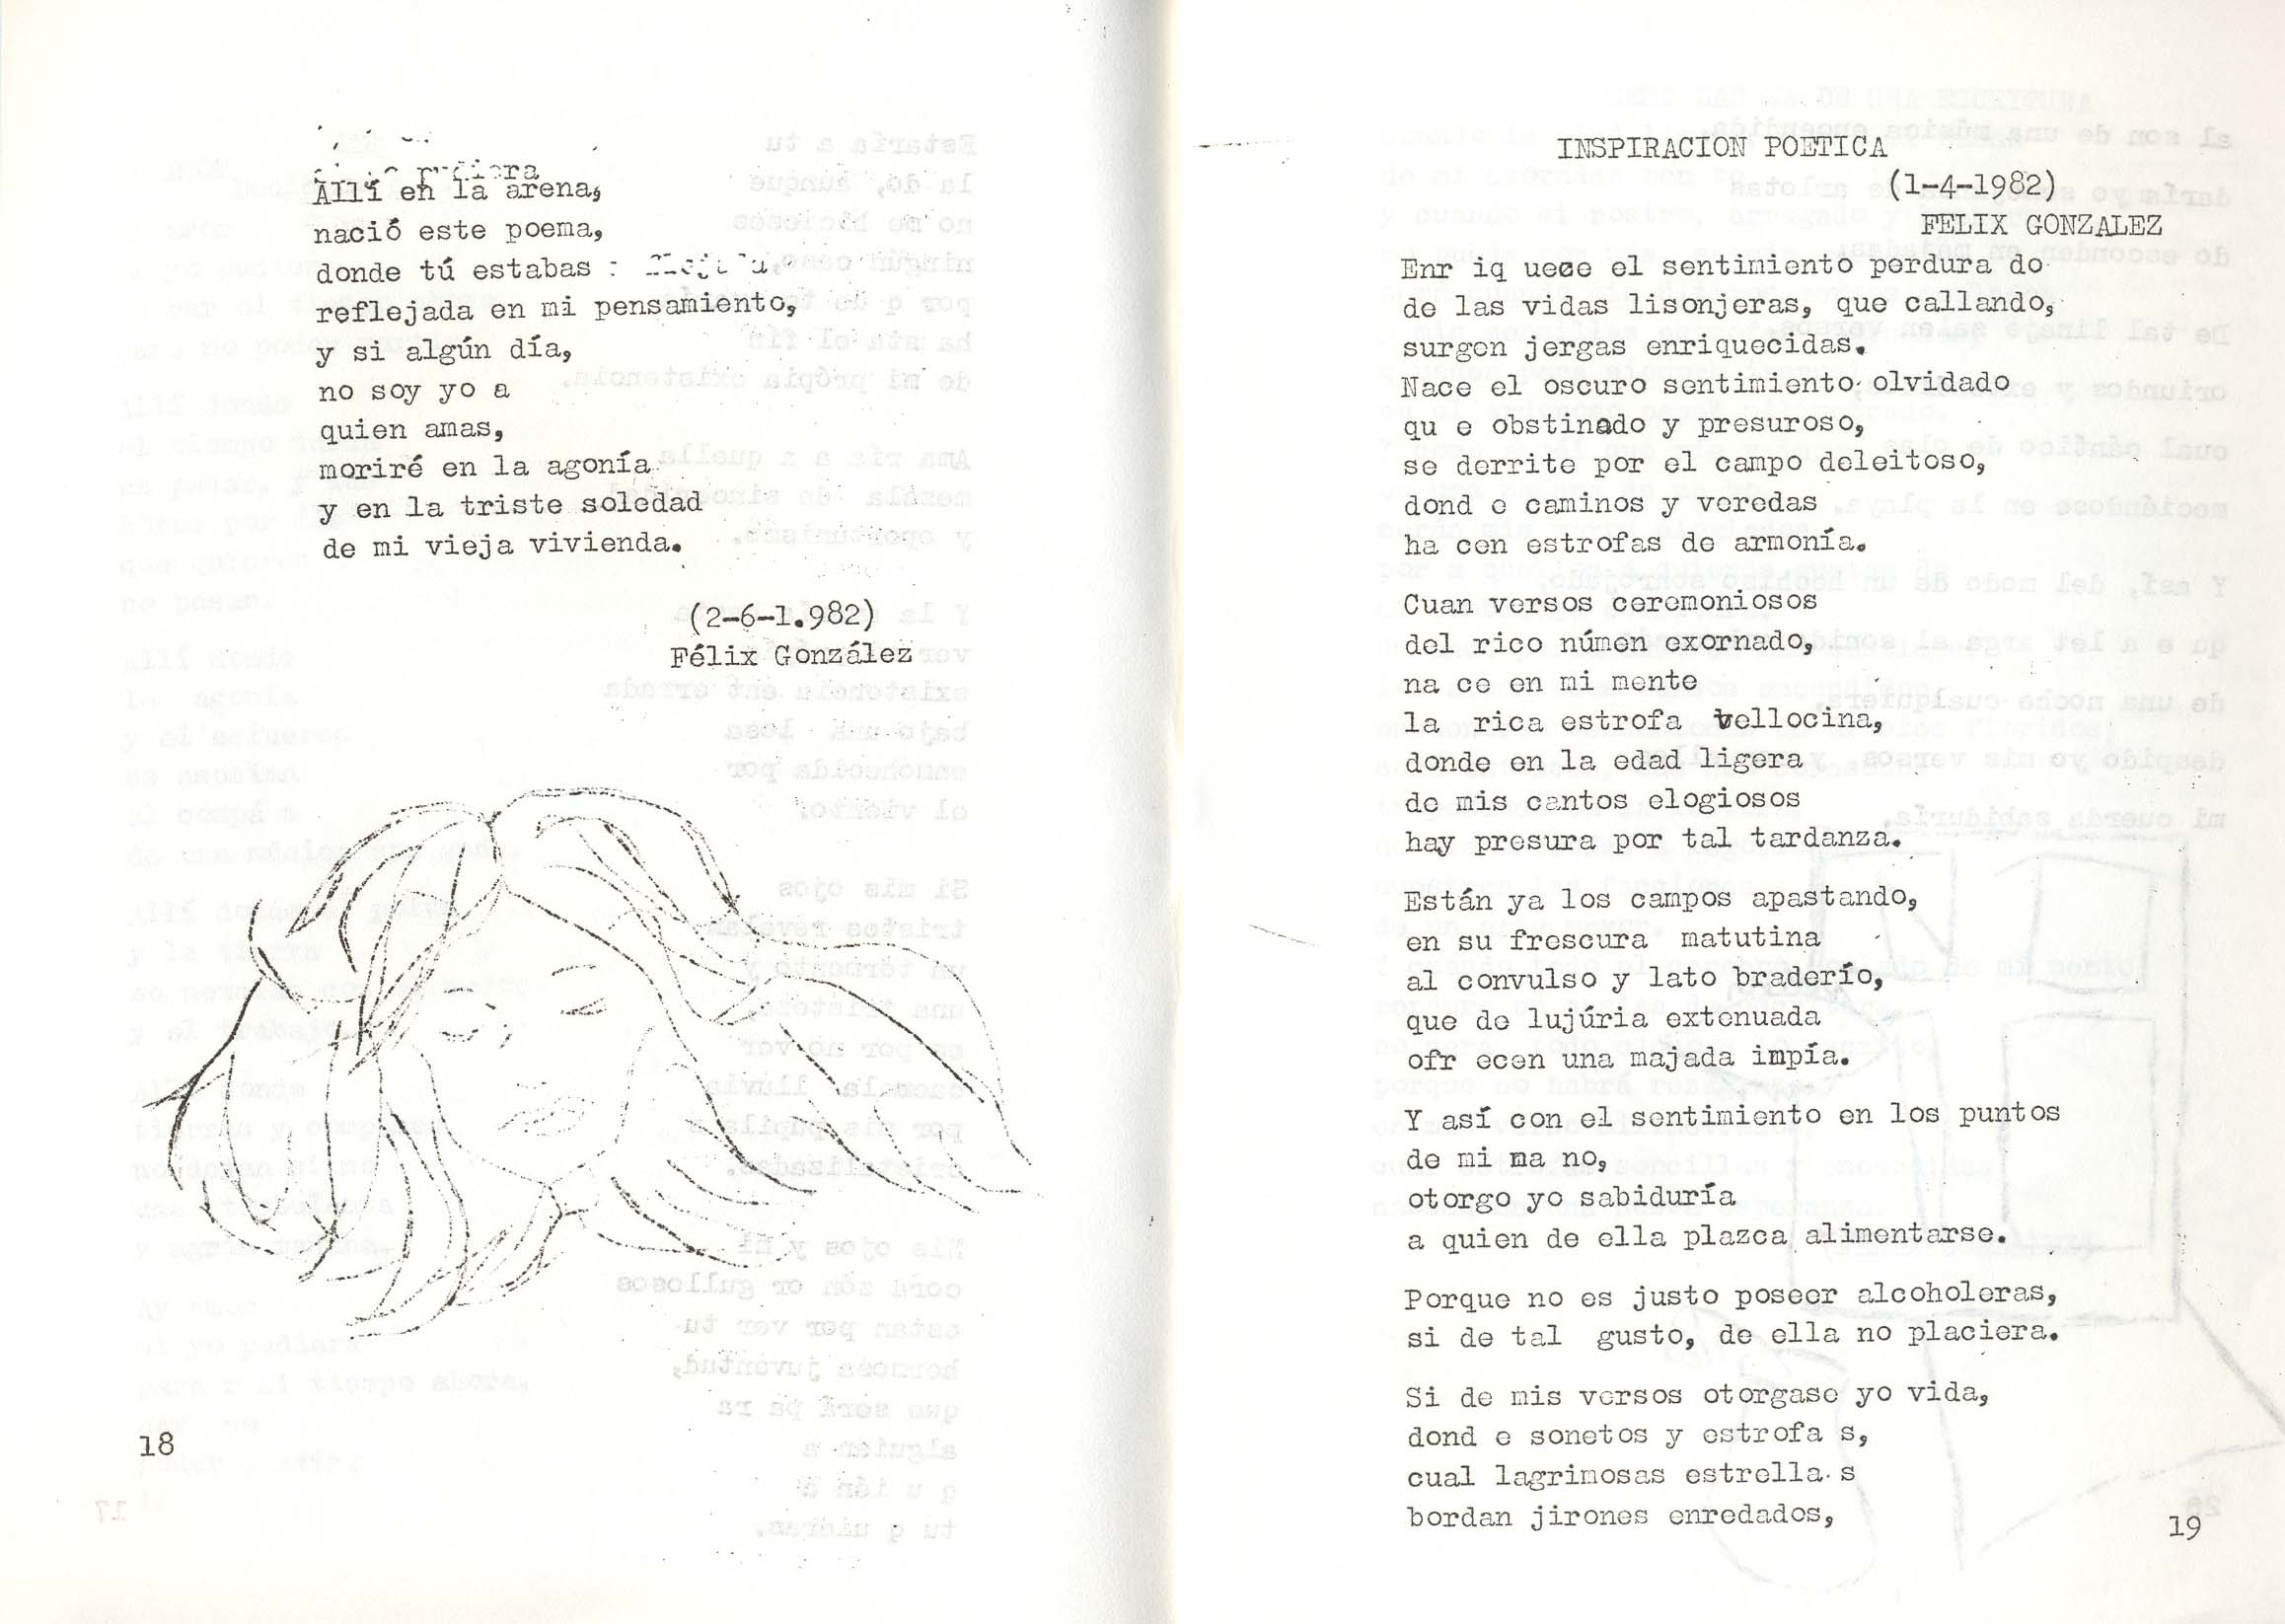 Allí en la arena,
nació este poema,
donde tú estabas
reflejada en mi pensamiento,
y si algún día,
no soy yo a
quien amas,
moriré en la agonía
y en la triste soledad
de mi vieja vivienda.
(2-6-1.982)
Félix González
18
INSPIRACION POETICA
(1-4-1982)
FELIX GONZALEZ
Enr iq uece el sentimiento perdura do
de las vidas lisonjeras, que callando,
surgen jergas enriquecidas.
Nace el oscuro sentimiento olvidado
qu e obstinado y presuroso,
se derrite por el campo deleitoso,
dond e caminos y veredas
ha cen estrofas de armonía.
Cuan versos ceremoniosos
del rico númen exornado,
na ce en mi mente
la rica estrofa vellocina,
donde en la edad ligera
de mis cantos elogiosos
hay presura por tal tardanza.
Están ya los campos apastando,
en su frescura matutina
al convulso y lato braderío,
que de lujúria extenuada
ofr ecen una majada impía.
Y así con el sentimiento en los puntos
de mi ma no,
otorgo yo sabiduría
a quien de ella plazca alimentarse.
Porque no es justo poseer alcoholeras,
si de tal gusto, de ella no placiera.
Si de mis versos otorgase yo vida,
dond e sonetos y estrofa s,
cual lagrimosas estrella s
bordan jirones enredados,
19